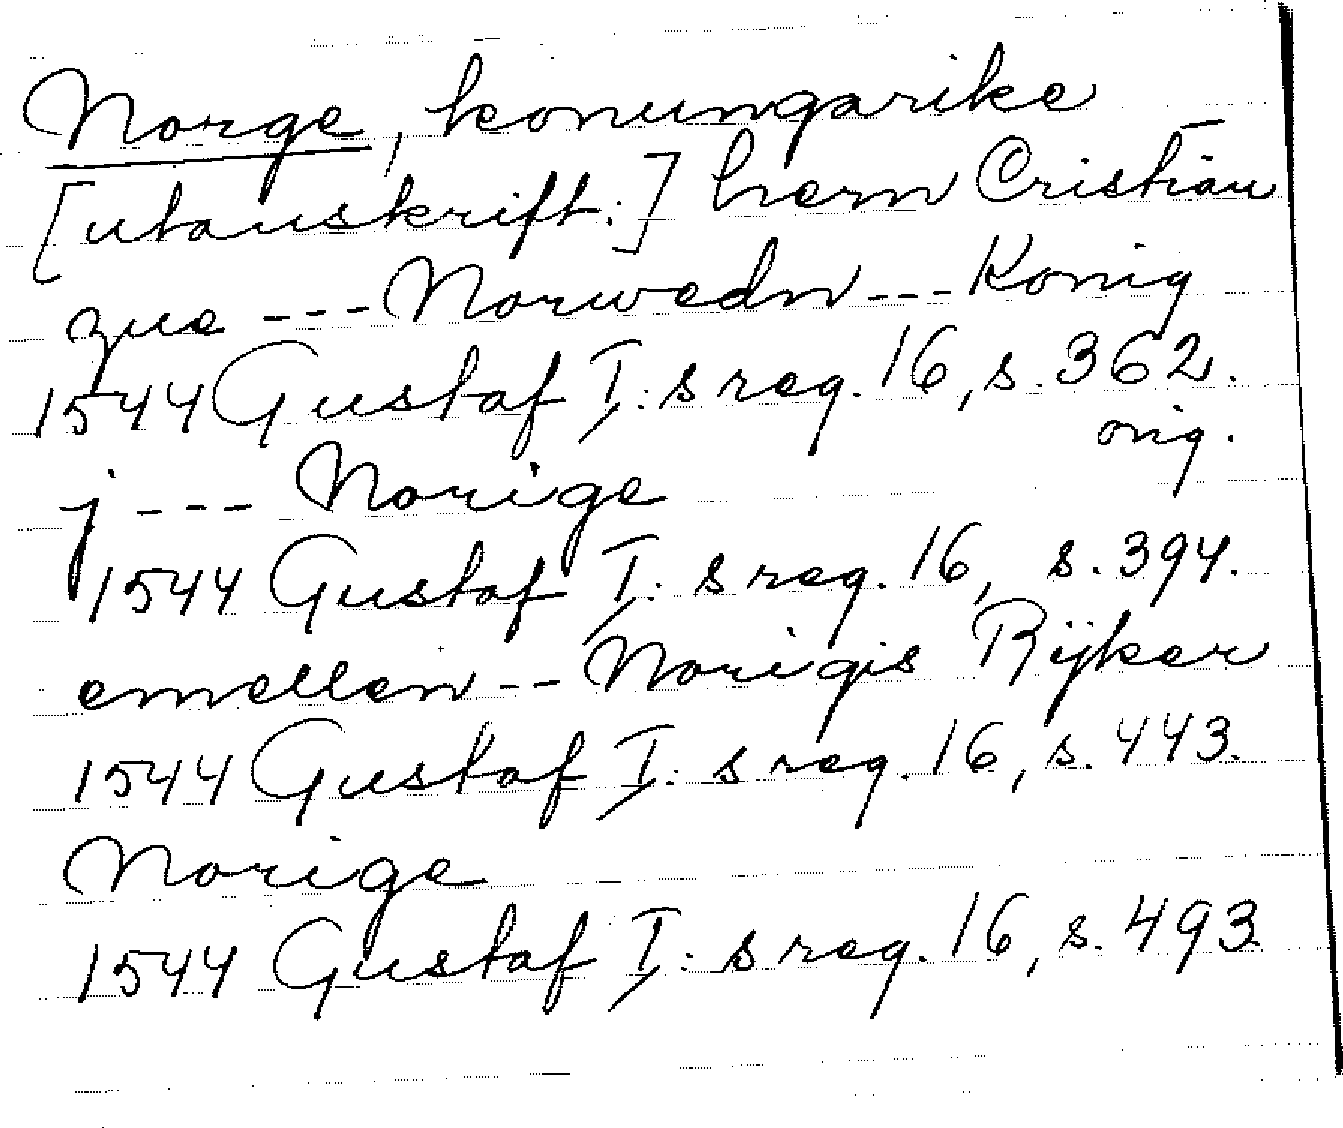 Norge, konungarike
[utanskrift:] hern Cristian
zue --- Norwedn --- Konig
1544 Gustaf I:s reg. 16, s. 362.
orig.
j --- Norige
1544 Gustaf I:s reg. 16, s. 394.
emellen -- Norigis Rijker
1544 Gustaf I:s reg. 16, s. 443.
Norige
1544 Gustaf I:s reg. 16, s. 493